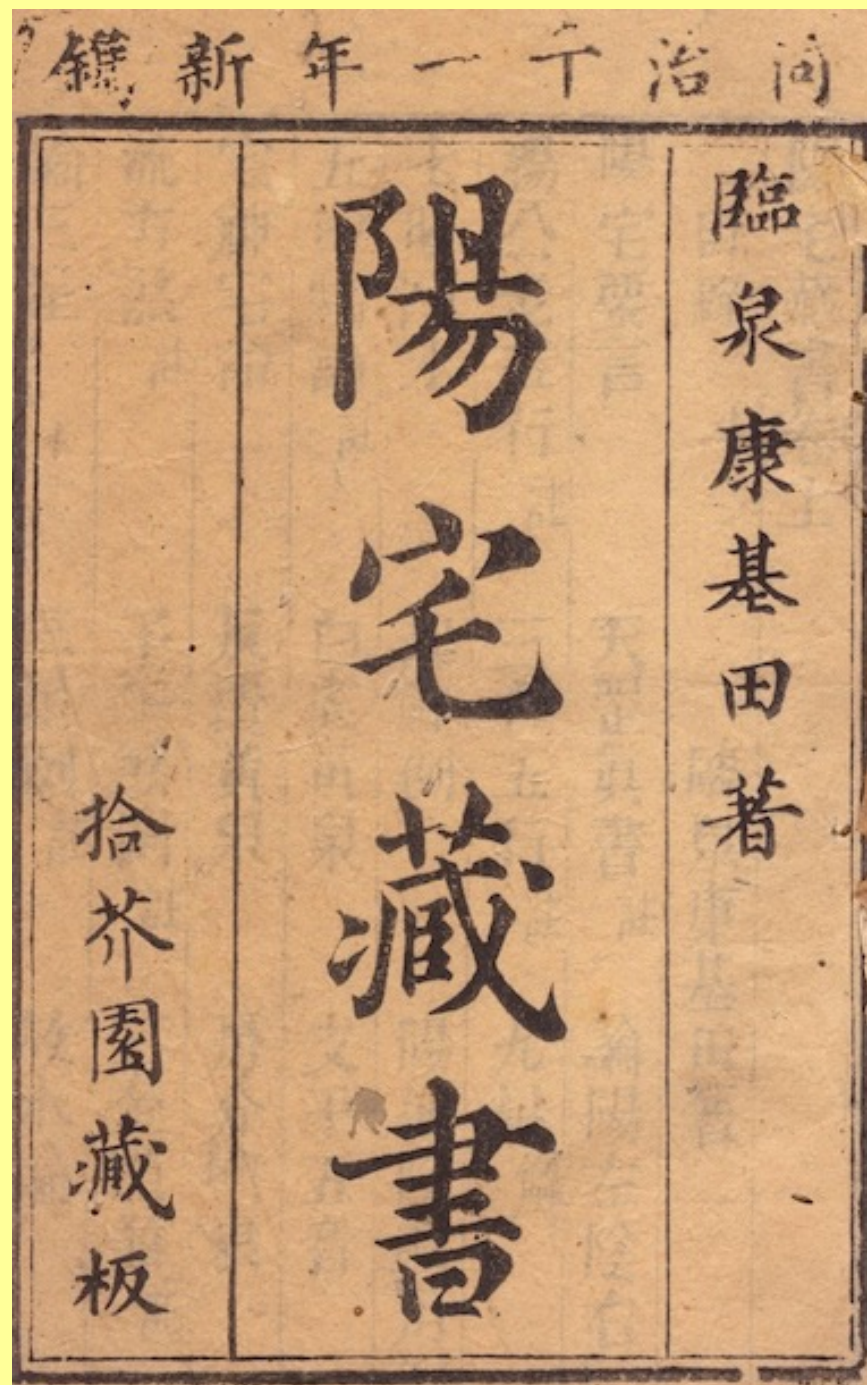 同治十一年新鐫
臨泉康基田著
陽宅藏書
拾芥園藏板